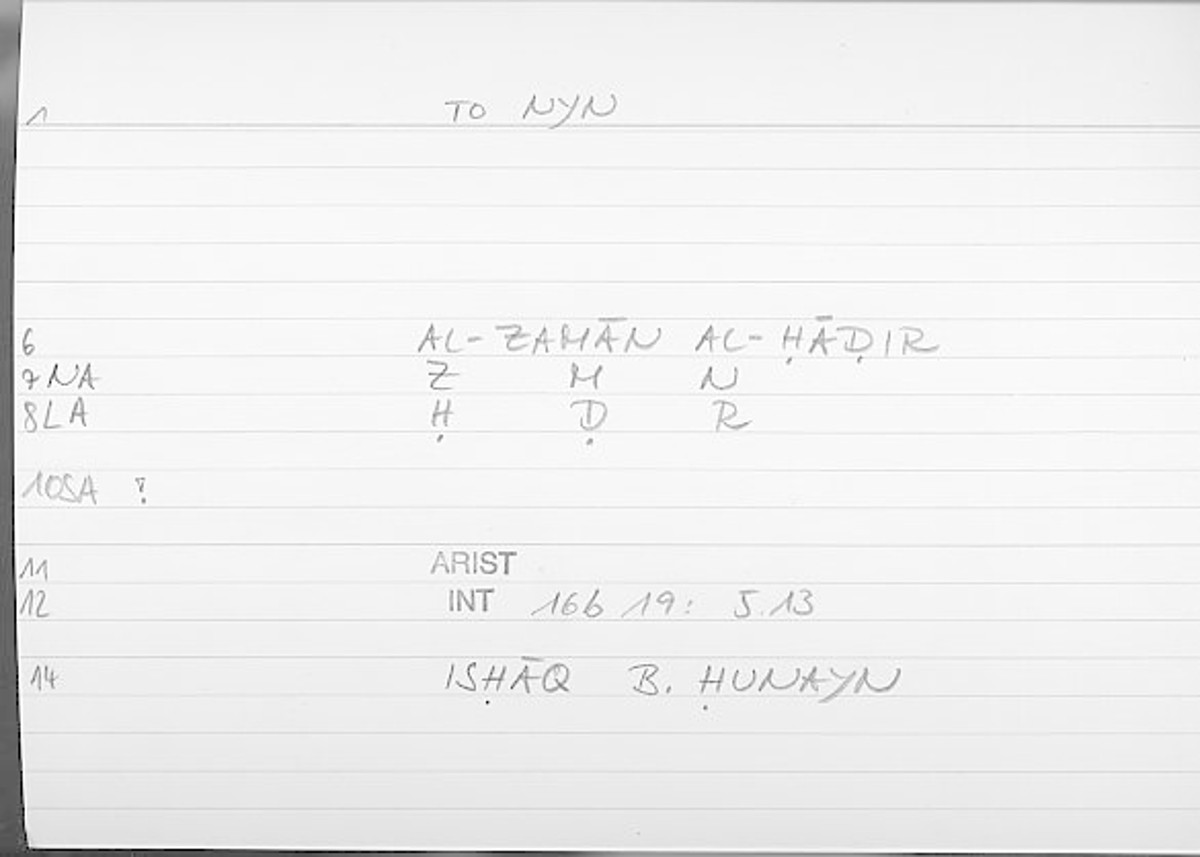 1 TO NYN
6 AL-ZAMĀN AL-ḤĀḌIR
7NA Z M N
8LA Ḥ Ḍ R
10SA
11 ARIST
12 INT 16b 19: 5.13
14 ISḤĀQ B. ḤUNAYN